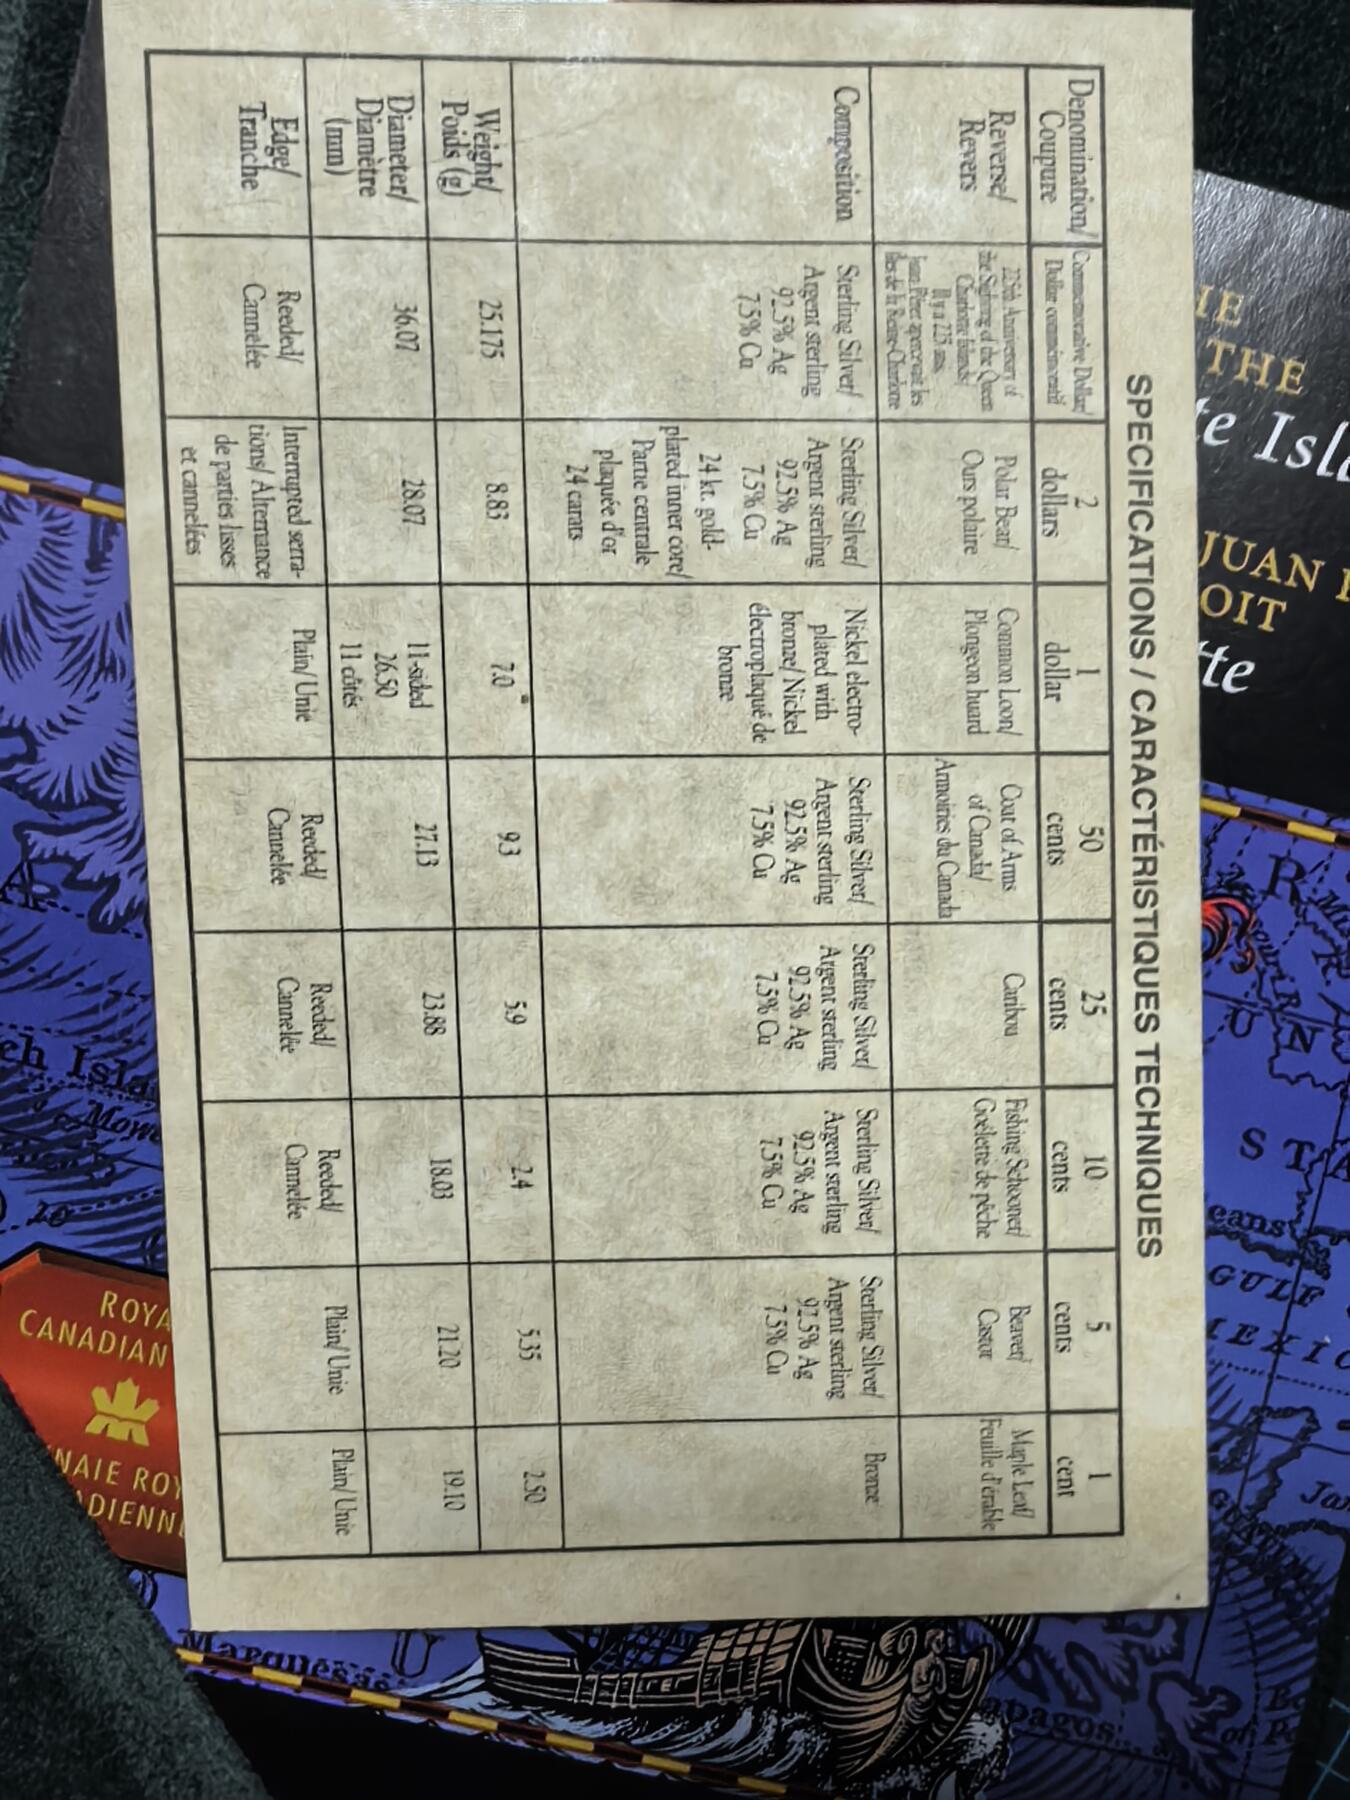 SPECIFICATIONS / CARACTÉRISTIQUES TECHNIQUES
Denomination/
Coupure
Commemorative Dollar/
Dollar commémoratif
2
dollars
1
dollar
50
cents
25
cents
10
cents
5
cents
1
cent
Reverse/
Revers
225th Anniversary of
the Sighting of the Queen
Charlotte Islands/
Il y a 225 ans,
Juan Pérez apercevait les
îles de la Reine-Charlotte
Polar Bear/
Ours polaire
Common Loon/
Plongeon huard
Coat of Arms
of Canada/
Armoiries du Canada
Caribou
Fishing Schooner/
Goélette de pêche
Beaver/
Castor
Maple Leaf/
Feuille d'érable
Composition
Sterling Silver/
Argent sterling
92.5% Ag
7.5% Cu
Sterling Silver/
Argent sterling
92.5% Ag
7.5% Cu
24 kt. gold-
plated inner core/
Partie centrale
plaquée d'or
24 carats
Nickel electro-
plated with
bronze/ Nickel
électroplaqué de
bronze
Sterling Silver/
Argent sterling
92.5% Ag
7.5% Cu
Sterling Silver/
Argent sterling
92.5% Ag
7.5% Cu
Sterling Silver/
Argent sterling
92.5% Ag
7.5% Cu
Sterling Silver/
Argent sterling
92.5% Ag
7.5% Cu
Bronze
Weight/
Poids (g)
25.175
8.83
7.0
9.3
5.9
2.4
5.35
2.50
Diameter/
Diamètre
(mm)
36.07
28.07
11-sided
26.50
11 côtés
27.13
23.88
18.03
21.20
19.10
Edge/
Tranche
Reeded/
Cannelée
Interrupted serra-
tions/ Alternance
de parties lisses
et cannelées
Plain/ Unie
Reeded/
Cannelée
Reeded/
Cannelée
Reeded/
Cannelée
Plain/ Unie
Plain/ Unie
THE
Isl
JUAN
OIT
tte
ROYA
CANADIAN
NAIE ROY
DIENN
Marquesas
apagos
GULF
MEXIC